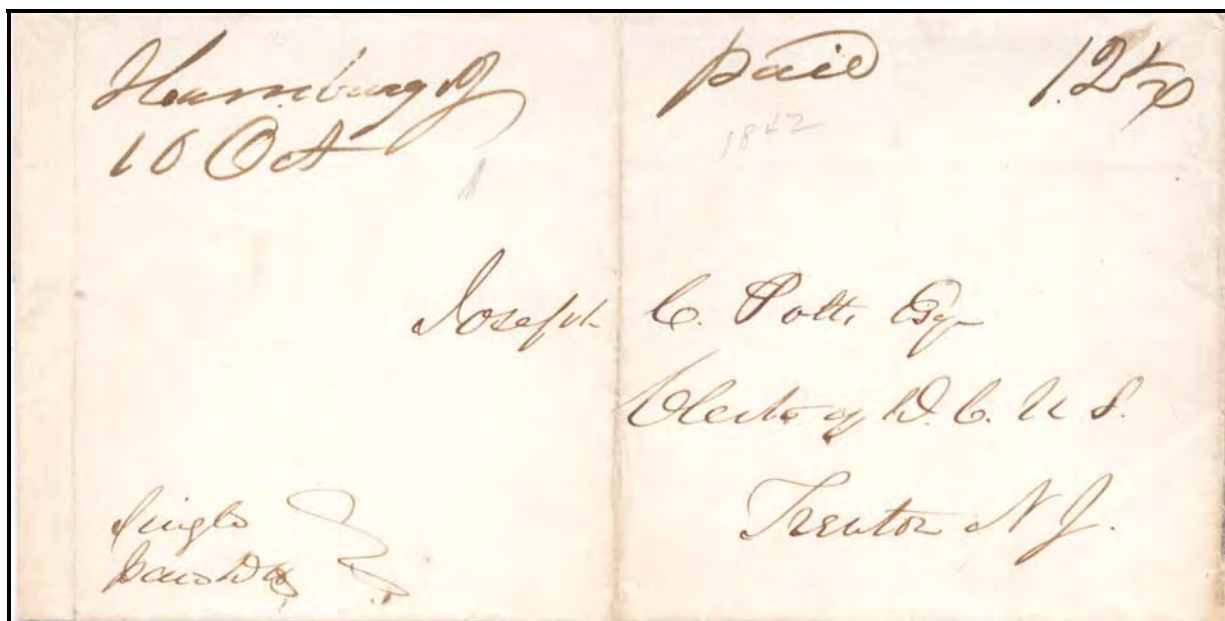 Hamburg NJ
10 Oct
paid 12½
1842
Joseph C. Potts Esq
Clerk of D. C. U S.
Trenton N J.
Single
Paid